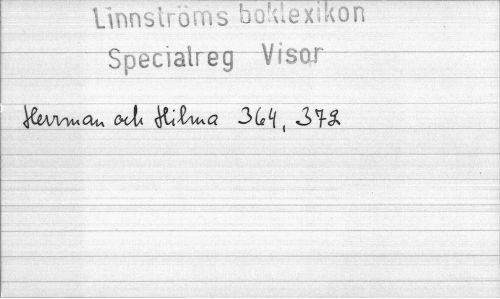 Linnströms boklexikon
Specialreg Visor
Herrman och Hilma 364, 372